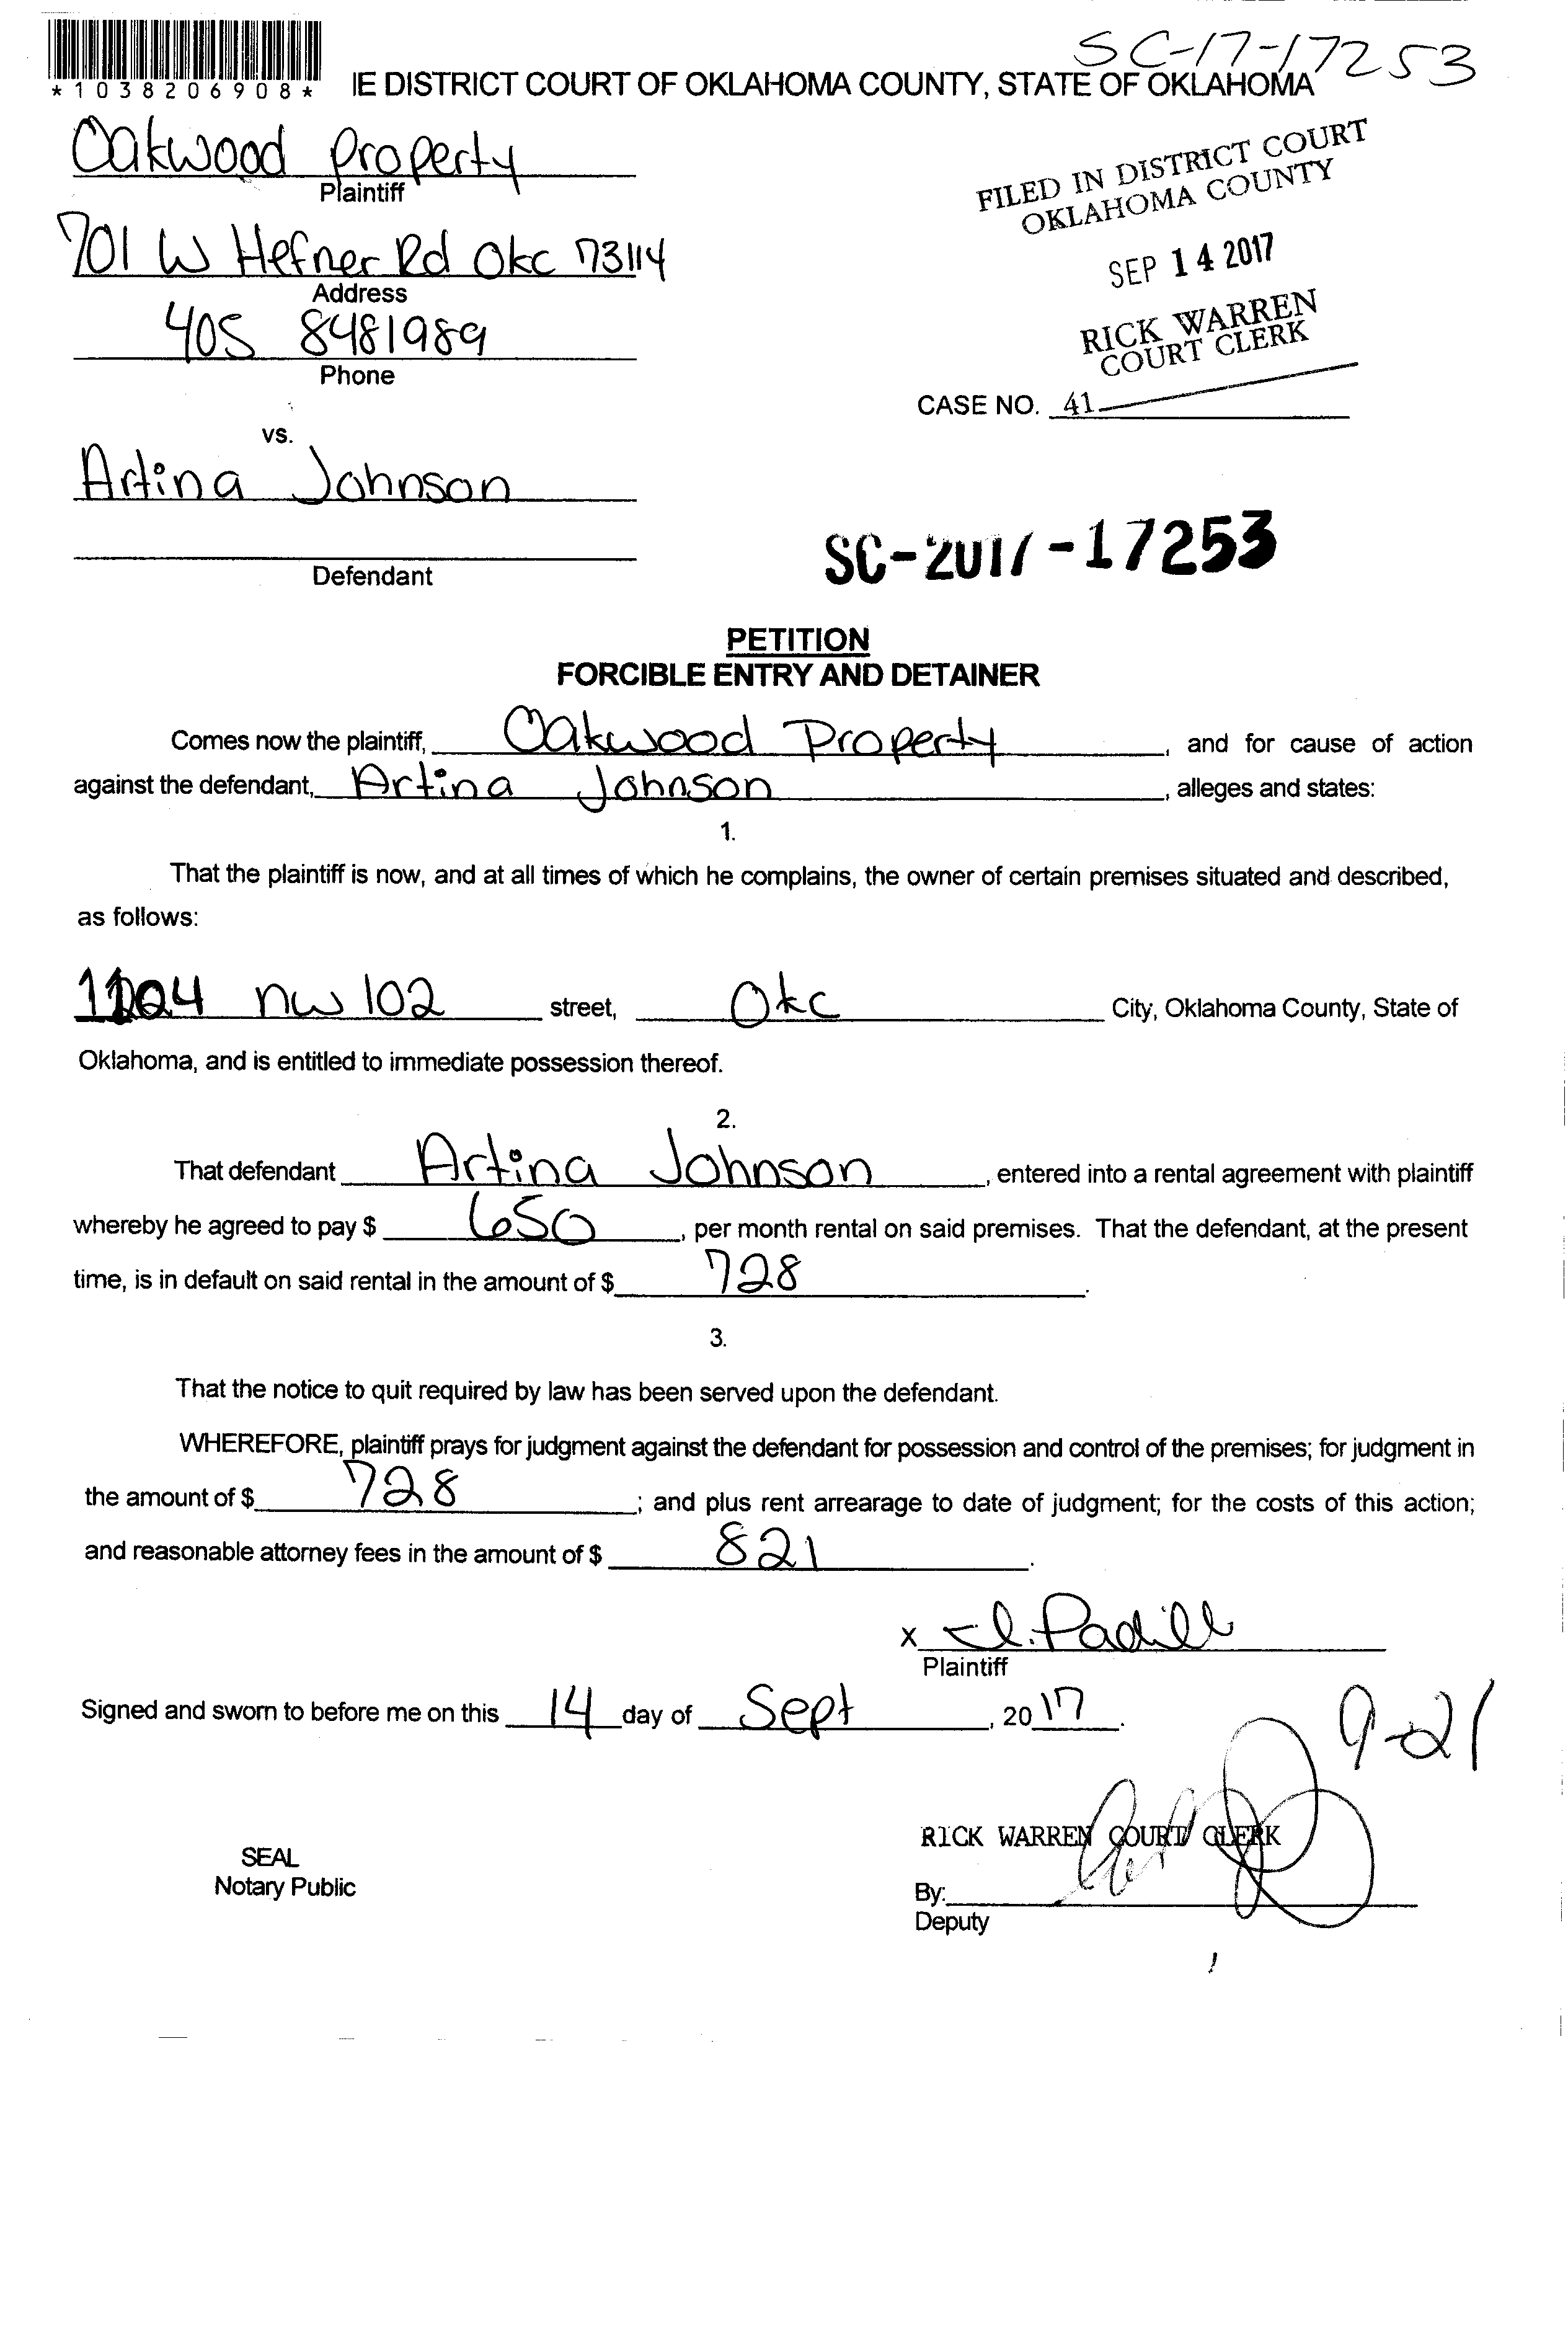 SC-17-17253
*1038206908*
IE DISTRICT COURT OF OKLAHOMA COUNTY, STATE OF OKLAHOMA
Oakwood Property
Plaintiff
FILED IN DISTRICT COURT
OKLAHOMA COUNTY
701 W Hefner Rd Okc 73114
Address
SEP 14 2017
405 8481989
Phone
RICK WARREN
COURT CLERK
CASE NO. 41
vs.
Artina Johnson
Defendant
SC-2017-17253
PETITION
FORCIBLE ENTRY AND DETAINER
Comes now the plaintiff, Oakwood Property, and for cause of action
against the defendant, Artina Johnson, alleges and states:
1.
That the plaintiff is now, and at all times of which he complains, the owner of certain premises situated and described,
as follows:
nw 102 street, Okc City, Oklahoma County, State of
Oklahoma, and is entitled to immediate possession thereof.
2.
That defendant Artina Johnson, entered into a rental agreement with plaintiff
whereby he agreed to pay $ 650, per month rental on said premises. That the defendant, at the present
time, is in default on said rental in the amount of $ 728.
3.
That the notice to quit required by law has been served upon the defendant.
WHEREFORE, plaintiff prays for judgment against the defendant for possession and control of the premises; for judgment in
the amount of $ 728; and plus rent arrearage to date of judgment; for the costs of this action;
and reasonable attorney fees in the amount of $ 821.
x
Plaintiff
Signed and sworn to before me on this 14 day of Sept, 2017.
9-21
RICK WARREN COURT CLERK
SEAL
Notary Public
By:
Deputy